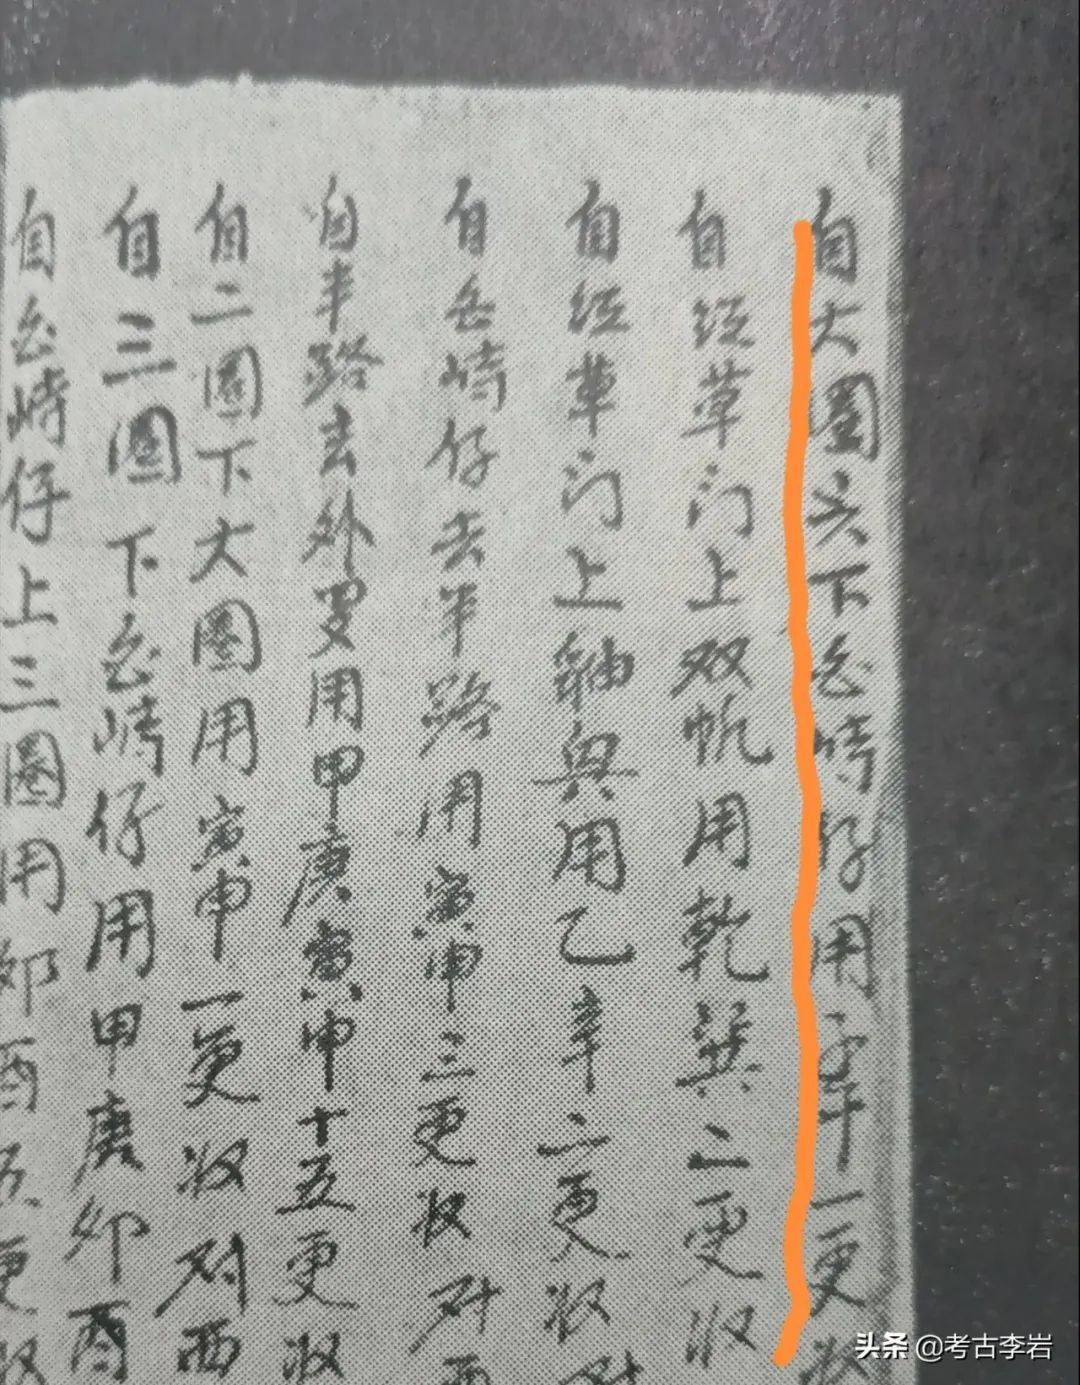 自大圈六下岙峙仔用子午一更收
自红草门上双帆用乾巽二更收
自红草门上舳舆用乙辛二更收对
自岙峙仔去半路用寅申三更收对西
自半路去外罗用甲庚寅申十五更收
自二圈下大圈用寅申一更收对西
自三圈下岙峙仔用甲庚卯酉
自岙峙仔上三圈用卯酉五更收
头条 @考古李岩